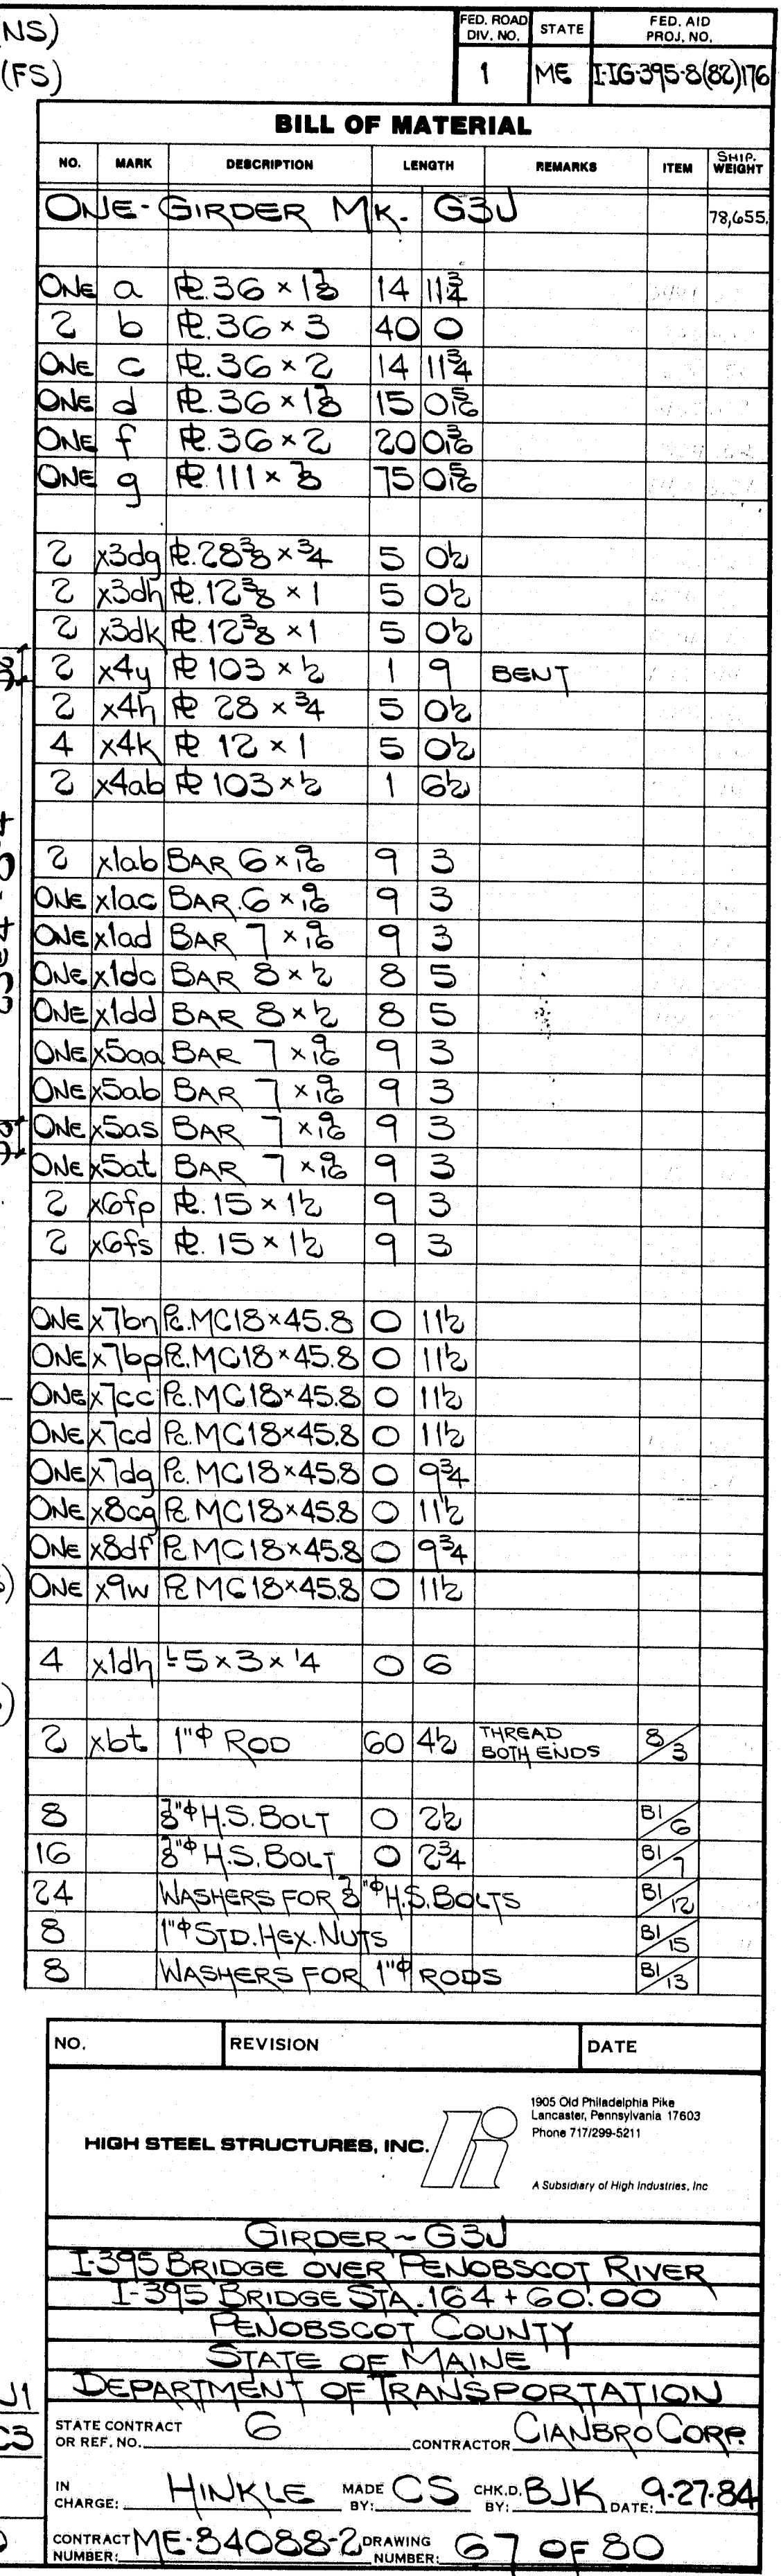 (NS)
(FS)
FED. ROAD DIV. NO. STATE FED. AID PROJ. NO.
1 ME I-IG-395-8(82)176
BILL OF MATERIAL
NO. MARK DESCRIPTION LENGTH REMARKS ITEM SHIP. WEIGHT
ONE - GIRDER MK. G3J 78,655.
ONE a ℞.36 × 1⅞ 14 11¾
2 b ℞.36 × 3 40 0
ONE c ℞.36 × 2 14 11¾
ONE d ℞.36 × 1⅞ 15 0 5/16
ONE f ℞.36 × 2 20 0 3/16
ONE g ℞.111 × ⅞ 75 0 5/16
2 x3dg ℞.28⅜ × ¾ 5 0½
2 x3dh ℞.12⅜ × 1 5 0½
2 x3dk ℞.12⅜ × 1 5 0½
2 x4y ℞ 103 × ½ 1 9 BENT
2 x4h ℞ 28 × ¾ 5 0½
4 x4k ℞ 12 × 1 5 0½
2 x4ab ℞ 103 × ½ 1 6½
2 x1ab BAR 6 × 9/16 9 3
ONE x1ac BAR.6 × 9/16 9 3
ONE x1ad BAR 7 × 9/16 9 3
ONE x1dc BAR 8 × ½ 8 5
ONE x1dd BAR 8 × ½ 8 5
ONE x5aa BAR 7 × 9/16 9 3
ONE x5ab BAR 7 × 9/16 9 3
ONE x5as BAR 7 × 9/16 9 3
ONE x5at BAR 7 × 9/16 9 3
2 x6fp ℞. 15 × 1½ 9 3
2 x6fs ℞. 15 × 1½ 9 3
ONE x7bn Pc.MC18×45.8 0 11½
ONE x7bp Pc.MC18×45.8 0 11½
ONE x7cc Pc.MC18×45.8 0 11½
ONE x7cd Pc.MC18×45.8 0 11½
ONE x7dg Pc.MC18×45.8 0 9¾
ONE x8cg Pc.MC18×45.8 0 11½
ONE x8df Pc MC18×45.8 0 9¾
ONE x9w Pc MC18×45.8 0 11½
4 x1dh L5 × 3 × ¼ 0 6
2 xbt 1"Φ ROD 60 4½ THREAD BOTH ENDS 8/3
8 ⅞"Φ H.S.BOLT 0 2½ B1/6
16 ⅞"Φ H.S.BOLT 0 2¾ B1/7
24 WASHERS FOR ⅞"Φ H.S.BOLTS B1/12
8 1"Φ STD.HEX.NUTS B1/15
8 WASHERS FOR 1"Φ RODS B1/13
NO. REVISION DATE
HIGH STEEL STRUCTURES, INC.
1905 Old Philadelphia Pike
Lancaster, Pennsylvania 17603
Phone 717/299-5211
A Subsidiary of High Industries, Inc
GIRDER ~ G3J
I-395 BRIDGE OVER PENOBSCOT RIVER
I-395 BRIDGE STA. 164 + 60.00
PENOBSCOT COUNTY
STATE OF MAINE
DEPARTMENT OF TRANSPORTATION
STATE CONTRACT OR REF. NO. 6 CONTRACTOR CIANBRO CORP.
IN CHARGE: HINKLE MADE BY: CS CHK.D. BY: BJK DATE: 9-27-84
CONTRACT NUMBER: ME-84088-2 DRAWING NUMBER: 67 OF 80